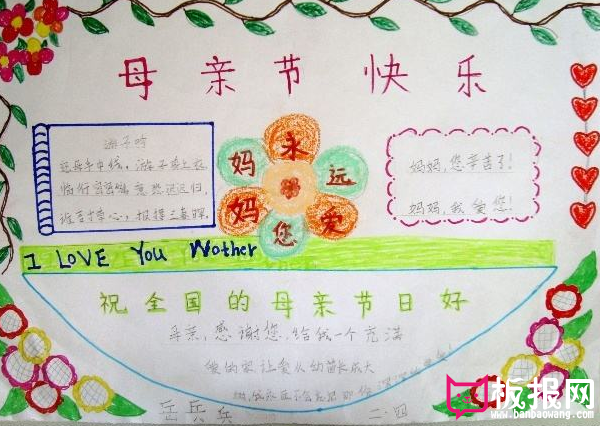 母亲节快乐
游子吟
慈母手中线,游子身上衣
临行密密缝,意恐迟迟归,
谁言寸草心,报得三春晖。
妈妈永远爱您
妈妈,您辛苦了!
妈妈,我爱您!
I LOVE You Mother
祝全国的母亲节日好
母亲,感谢您,给我一个充满
爱的家让爱从幼苗长成大
岳兵兵 二.四
板报网
www.banbaowang.com